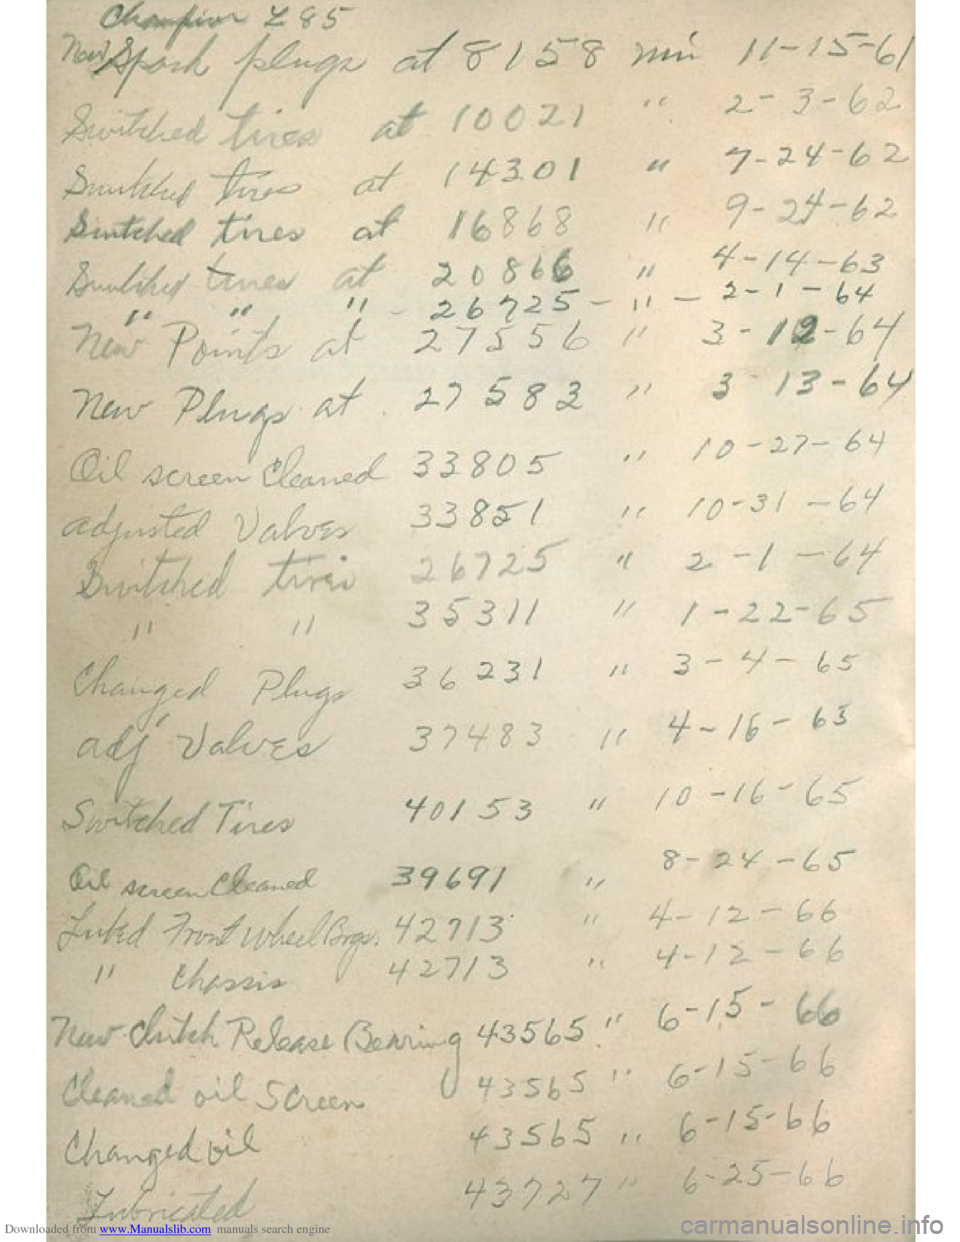 Champion L 85
New Spark plugs at 8158 mi 11-15-61
Switched tires at 10021 " 2-3-62
Switched tires at 14301 " 7-24-62
Switched tires at 16868 " 9-24-62
Switched tires at 20866 " 4-14-63
" " " - 26725 - " - 2-1-64
New Points at 27556 " 3-12-64
New Plugs at 27583 " 3-13-64
Oil screen Cleaned 33805 " 10-27-64
adjusted Valves 33851 " 10-31-64
Switched tires 26725 " 2-1-64
" " 35311 " 1-22-65
Changed Plugs 36231 " 3-4-65
adj Valves 37483 " 4-16-65
Switched Tires 40153 " 10-16-65
Oil screen Cleaned 39691 " 8-24-65
Lubed Front Wheel Brgs. 42713 " 4-12-66
" Chassis 42713 " 4-12-66
New Clutch Release Bearing 43565 " 6-15-66
Cleaned oil Screen 43565 " 6-15-66
Changed oil 43565 " 6-15-66
Lubricated 43727 " 6-25-66
Downloaded from www.Manualslib.com manuals search engine
carmanualsonline.info